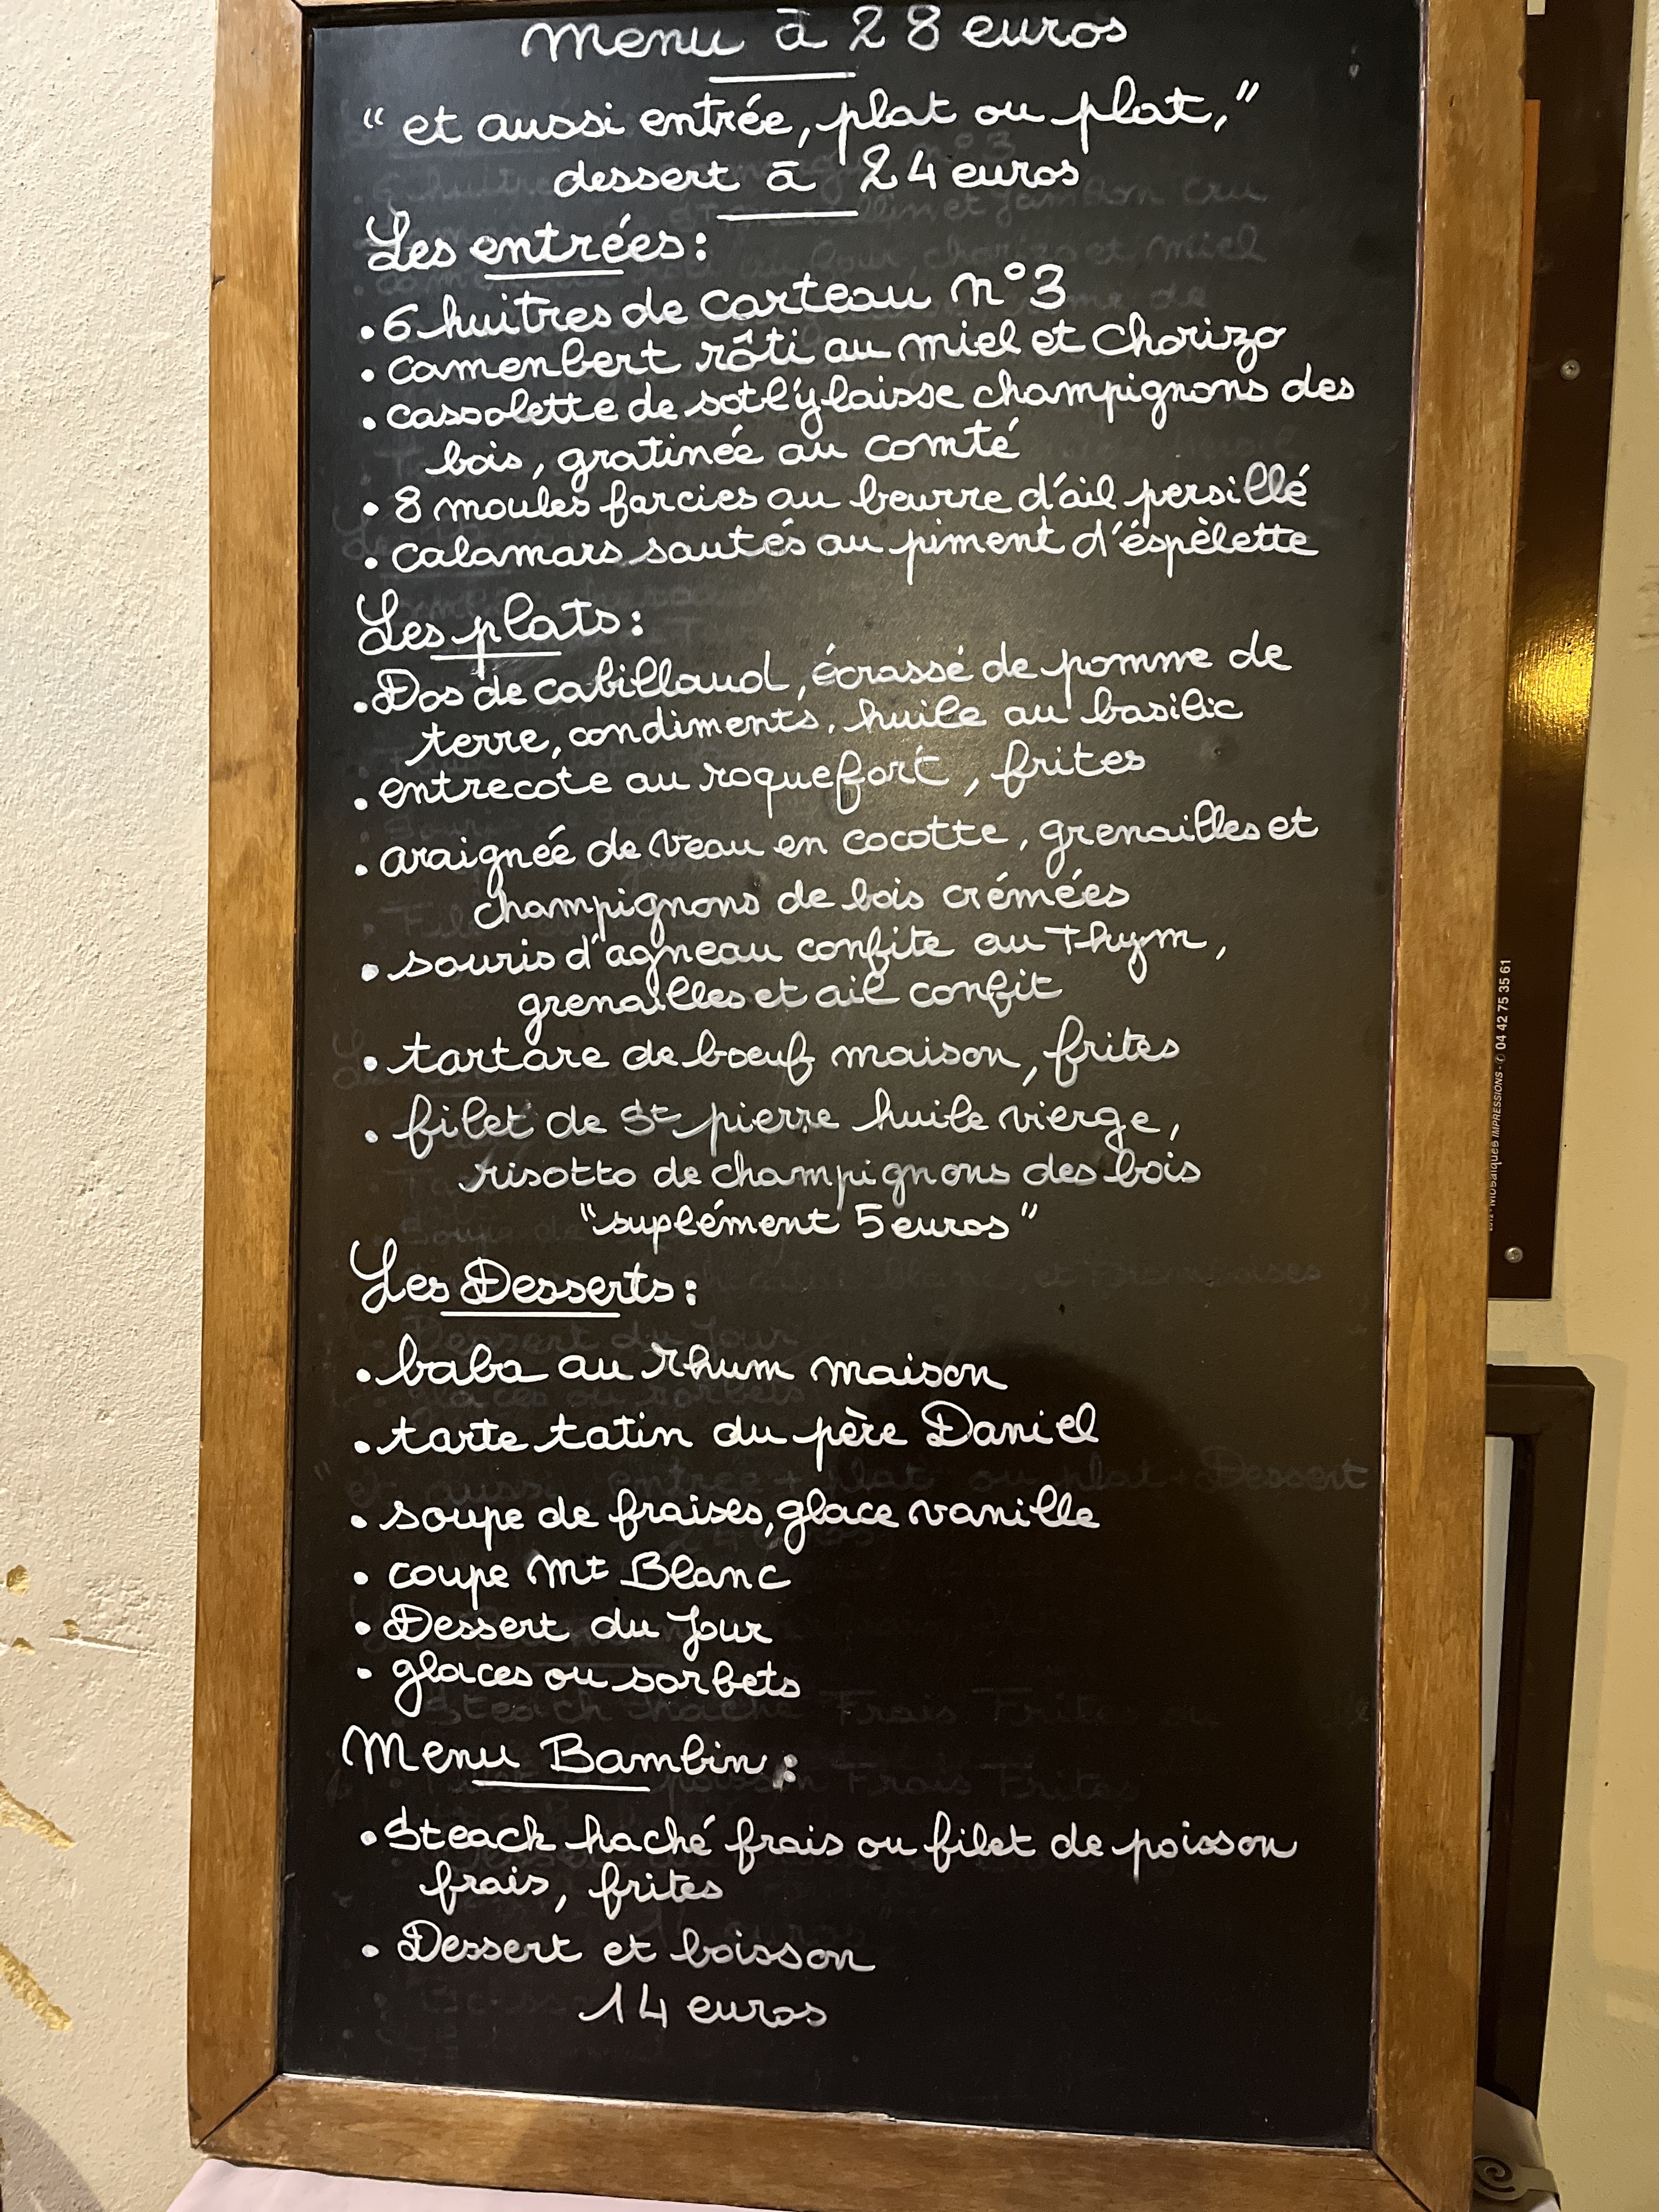 menu à 28 euros
" et aussi entrée, plat ou plat, "
dessert à 24 euros
Les entrées :
. 6 huitres de carteau n°3
. camenbert rôti au miel et chorizo
. cassolette de sotl'ylaisse champignons des
bois, gratinée au comté
. 8 moules farcies au beurre d'ail persillé
. calamars sautés au piment d'éspèlette
Les plats :
. Dos de cabillaud, écrassé de pomme de
terre, condiments, huile au basilic
. entrecote au roquefort, frites
. araignée de veau en cocotte, grenailles et
champignons de bois crémées
. souris d'agneau confite au thym,
grenailles et ail confit
. tartare de boeuf maison, frites
. filet de St pierre huile vierge,
risotto de champignons des bois
"suplément 5 euros"
Les Desserts :
. baba au rhum maison
. tarte tatin du père Daniel
. soupe de fraises, glace vanille
. coupe Mt Blanc
. Dessert du Jour
. glaces ou sorbets
Menu Bambin :
. Steack haché frais ou filet de poisson
frais, frites
. Dessert et boisson
14 euros
IMPRESSIONS - 04 42 75 35 61